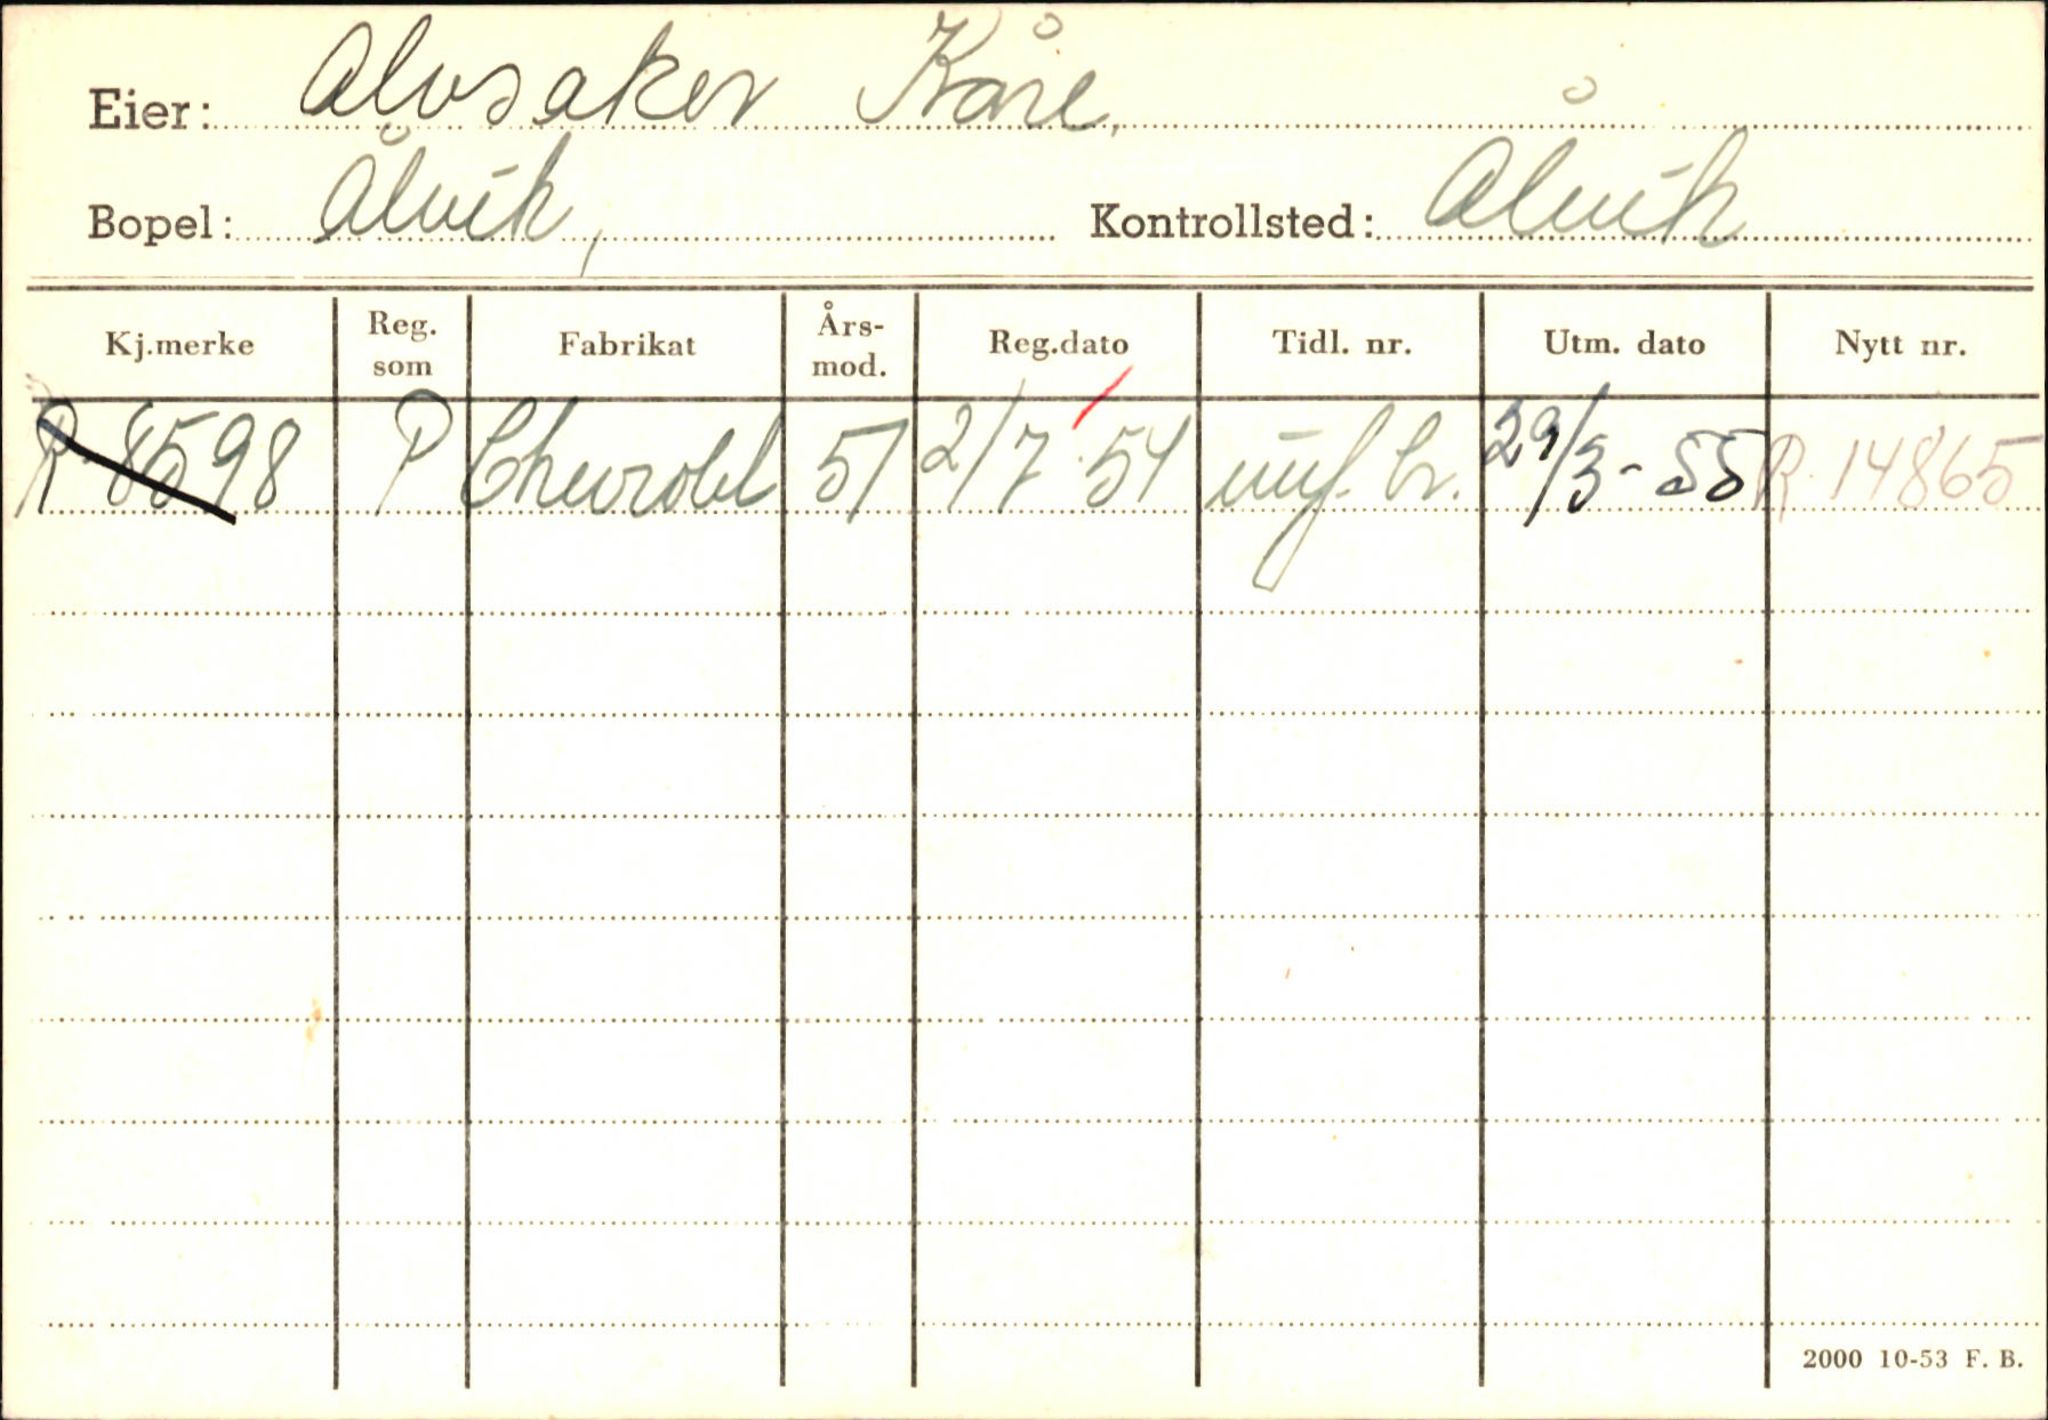 Eier: Alvsaker Kåre,
Bopel: Ålvik, Kontrollsted: Ålvik
Kj.merke Reg. som Fabrikat Års-mod. Reg.dato Tidl. nr. Utm. dato Nytt nr.
R-8598 P Chevrolet 51 2/7-54 29/3-55 R-14865
2000 10-53 F. B.